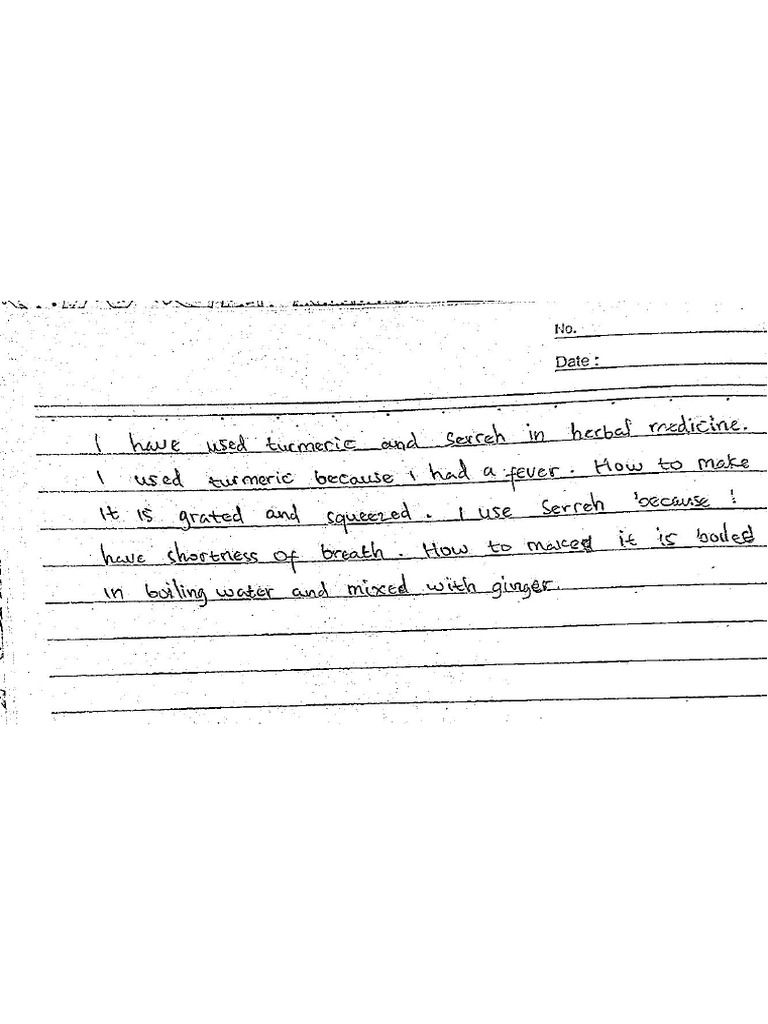 No.
Date :
I have used turmeric and Serreh in herbal medicine.
I used turmeric because I had a fever. How to make
It is grated and squeezed. I use Serreh because I
have shortness of breath. How to maked it is boded
in boiling water and mixed with ginger.